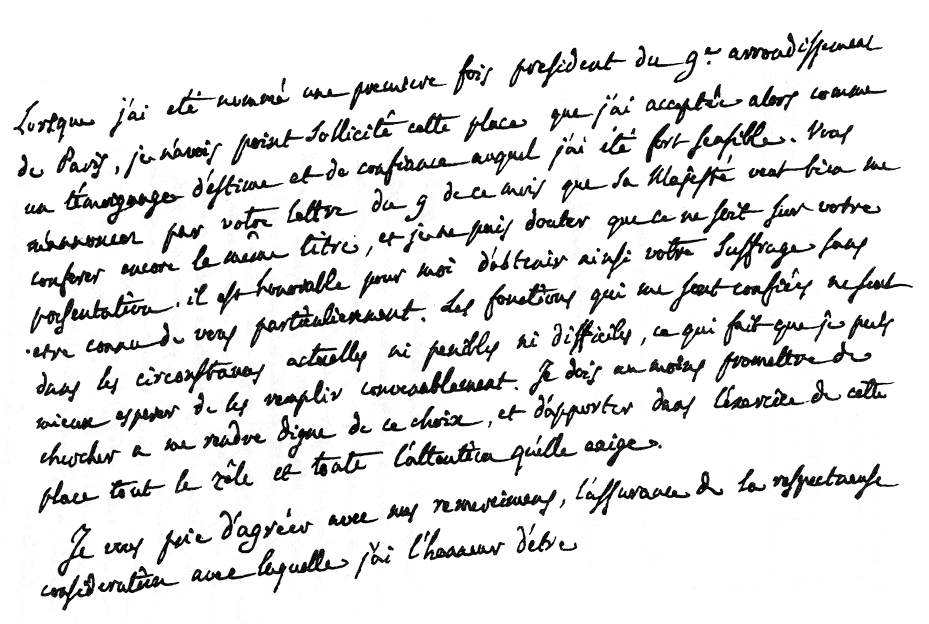 Lorsque j'ai eté nommé une premiere fois president du 9e arrondissement
de Paris, je n'avois point sollicité cette place que j'ai acceptée alors comme
un témoignage d'estime et de confiance auquel j'ai été fort sensible. Vous
m'annoncez par votre lettre du 9 de ce mois que Sa Majesté veut bien me
conferer encore le même titre, et je ne puis douter que ce ne soit sur votre
présentation. il est honorable pour moi d'obtenir ainsi votre suffrage sans
etre connu de vous particulierement. Les fonctions qui me sont confiées ne sont
dans les circonstances actuelles ni penibles ni difficiles, ce qui fait que je puis
mieux esperer de les remplir convenablement. Je dois au moins promettre de
chercher a me rendre digne de ce choix, et d'apporter dans l'exercice de cette
place tout le zèle et toute l'attention qu'elle exige.
Je vous prie d'agréer avec mes remerciemens, l'assurance de la respectueuse
consideration avec laquelle j'ai l'honneur d'être